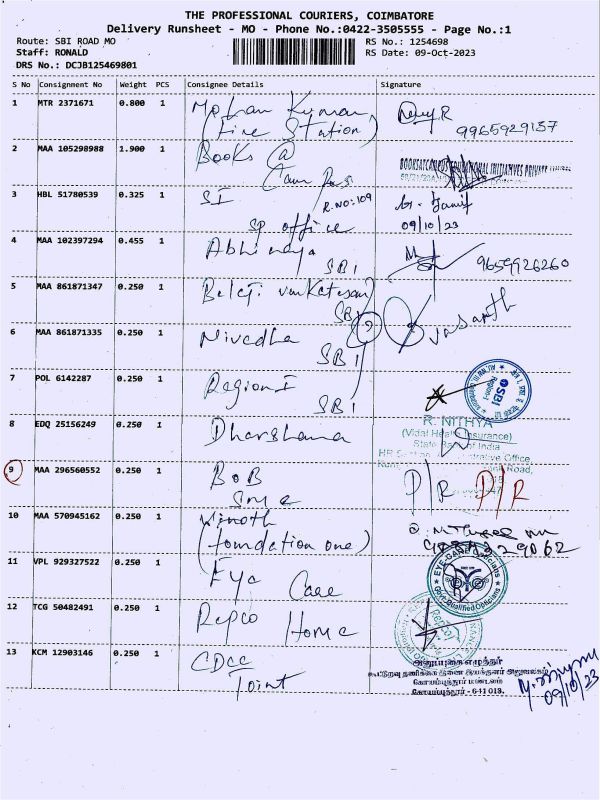 THE PROFESSIONAL COURIERS, COIMBATORE
Delivery Runsheet - MO - Phone No.:0422-3505555 - Page No.:1
Route: SBI ROAD MO
RS No.: 1254698
Staff: RONALD
RS Date: 09-Oct-2023
DRS No.: DCJB125469801
S No Consignment No Weight PCS Consignee Details Signature
1 MTR 2371671 0.800 1 Mohan Kumar
(Fire Station) 9965929137
2 MAA 105298988 1.900 1 Books @
3 HBL 51780539 0.325 1 SI R.NO:109
SP office 09/10/23
4 MAA 102397294 0.455 1 Abhinaya
SBI 9659926260
5 MAA 861871347 0.250 1 Balaji venkatesan
SBI Vasanth
6 MAA 861871335 0.250 1 Nivedha
SBI
7 POL 6142287 0.250 1 Region I
SBI
8 EDQ 25156249 0.250 1 Dharshana
R. NITHYA
(Vidal Health Insurance)
State Bank of India
9 MAA 296560552 0.250 1 BOB D/R D/R
Sme
10 MAA 570945162 0.250 1 Vinoth
(foundation one)
11 VPL 929327522 0.250 1 Eye Care
EYE-CARE Opticians
Govt. Qualified Opticians
12 TCG 50482491 0.250 1 Repco Home
13 KCM 12903146 0.250 1 CDCC
Joint
அனுப்புகை எழுத்தர்
கூட்டுறவு தணிக்கை இணை இயக்குனர் அலுவலகம்
கோயம்புத்தூர் மண்டலம்
கோயம்புத்தூர் - 641 018.
09/10/23